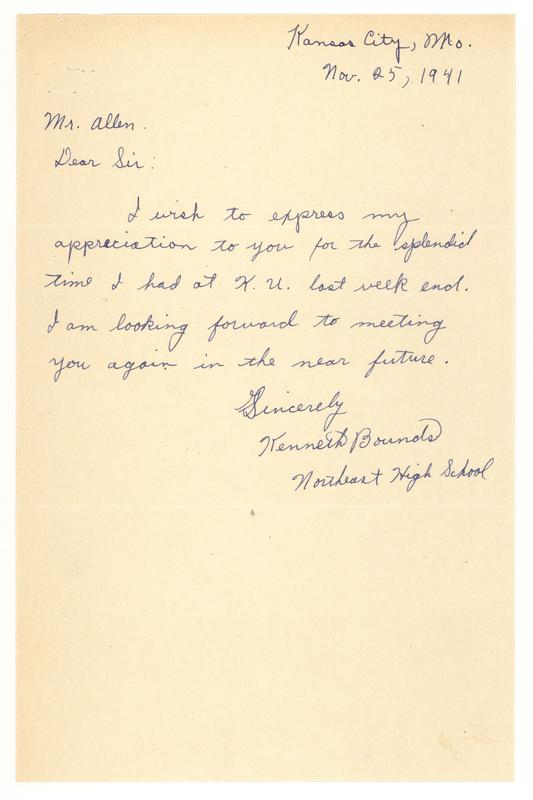 Kansas City, Mo.
Nov. 25, 1941
Mr. Allen.
Dear Sir:
I wish to express my
appreciation to you for the splendid
time I had at K. U. last week end.
I am looking forward to meeting
you again in the near future.
Sincerely
Kenneth Bounds
Northeast High School